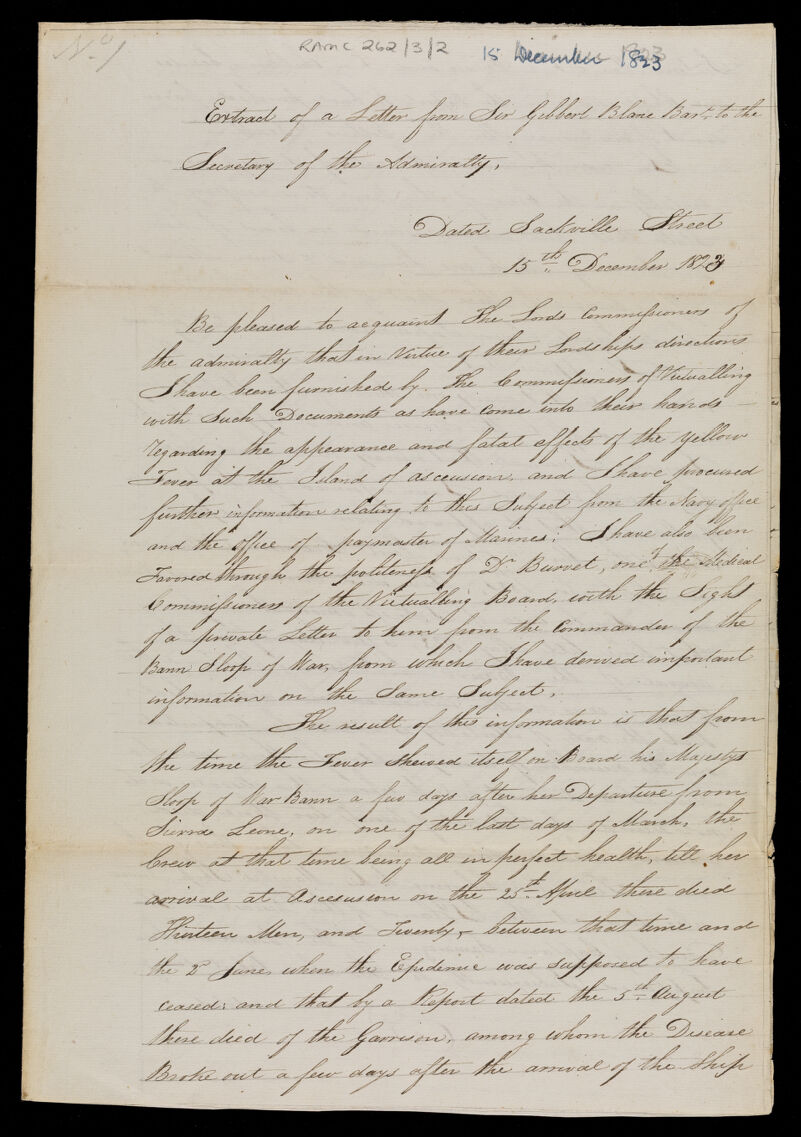 No 1
RAMC 262/3/2 15 December 1823
Extract of a Letter from Sir Gilbert Blane Bart. to the
Secretary of the Admiralty,
Dated Sackville Street
15th December 1823
Be pleased to acquaint The Lords Commissioners of
the admiralty that in Virtue of their Lordships directions
I have been furnished by. The Commissioners of Victualling
with Such Documents as have come into their hands –
regarding the appearance and fatal effects of the yellow
Fever at the Island of ascension, and I have procured
further information relating to this Subject from the Navy office
and the office of paymaster of Marines; I have also been
Favored through the politeness of Dr Burnet, one of the Medical
Commissioners of the Victualling Board, with the Sight
of a private Letter to him from the Commander of the
Bann Sloop of War, from which I have derived important
information on the Same Subject.
The result of this information is that from
the time the Fever Shewed itself on Board his Majestys
Sloop of War Bann a few days after her Departure from
Sierra Leone, on one of the last days of March, the
Crew at that time being all in perfect health, till her
arrival at Ascension on the 25th April there died
Thirteen Men, and Twenty, between that time and
the 2d June, when the Epidemic was supposed to have
ceased; and that by a Report dated the 5th August
there died of the Garrison, among whom the Disease
Broke out a few days after the arrival of the Ship